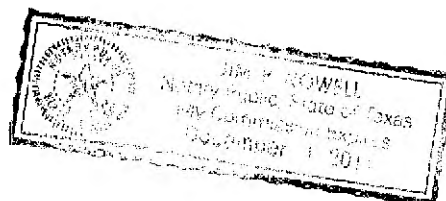 JIM P. NOWELL
Notary Public, State of Texas
My Commission Expires
December 1, 201